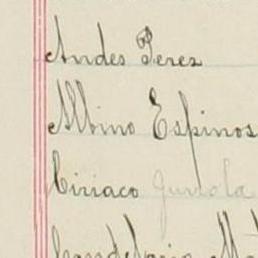 Andes Perez
Albino Espinos
Ciriaco
Candelario